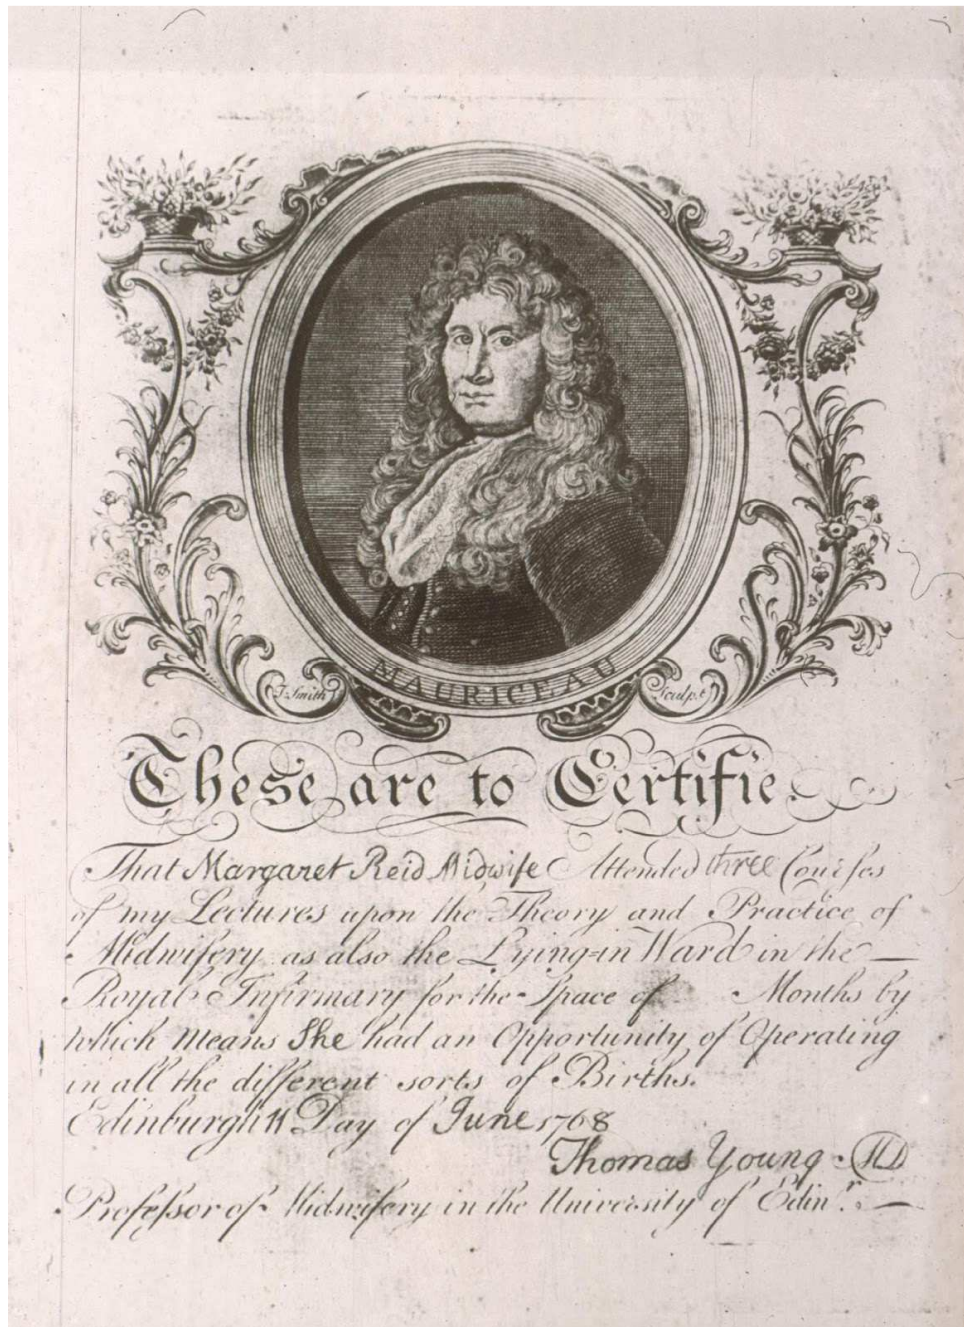 MAURICEAU
J. Smith Sculpt
These are to Certifie.
That Margaret Reid Midwife Attended three Courses
of my Lectures upon the Theory and Practice of
Midwifery as also the Lying=in Ward in the —
Royal Infirmary for the Space of Months by
which means She had an Opportunity of Operating
in all the different sorts of Births.
Edinburgh 11 Day of June 1768
Thomas Young MD
Professor of Midwifery in the University of Edinr. —